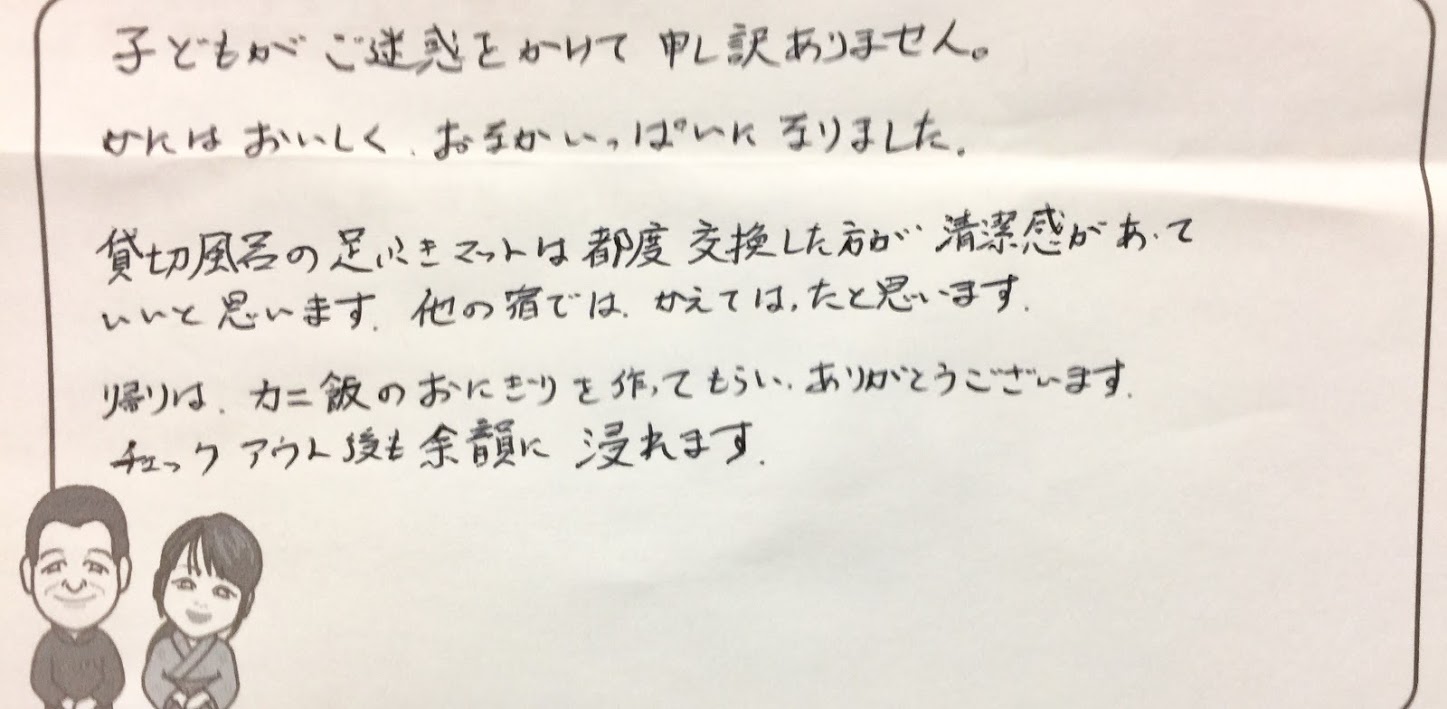 子どもが ご迷惑をかけて 申し訳ありません。
かには おいしく、おなかいっぱいに なりました。
貸切風呂の足ふきマットは都度 交換した方が 清潔感があって
いいと思います。他の宿では、かえてはったと思います。
帰りは、カニ飯のおにぎりを作ってもらい、ありがとうございます。
チェックアウト後も余韻に 浸れます。